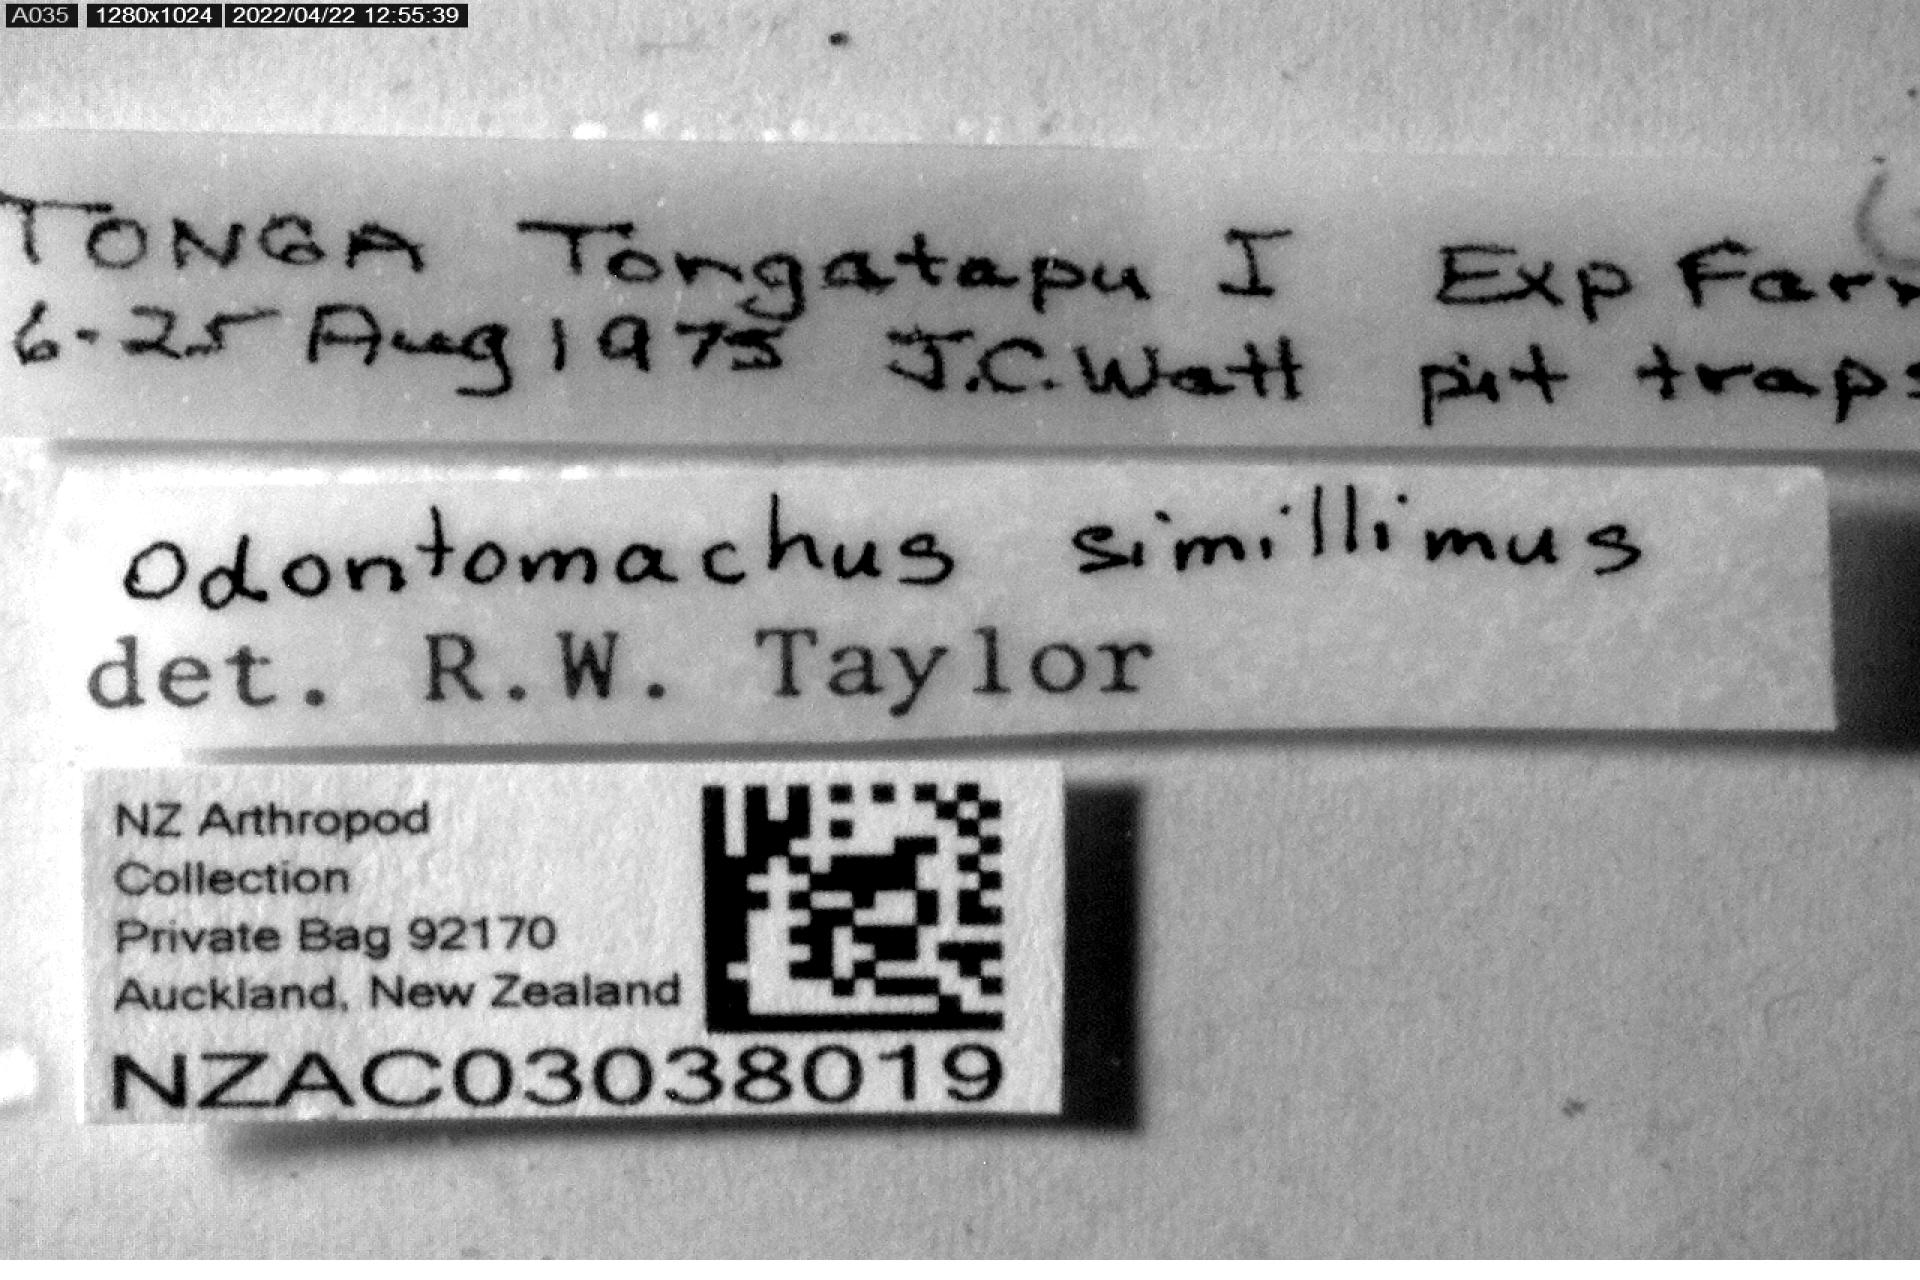 A035 1280x1024 2022/04/22 12:55:39
TONGA Tongatapu I Exp Farm
6-25 Aug 1975 J.C. Watt pit traps
Odontomachus simillimus
det. R.W. Taylor
NZ Arthropod
Collection
Private Bag 92170
Auckland, New Zealand
NZAC03038019